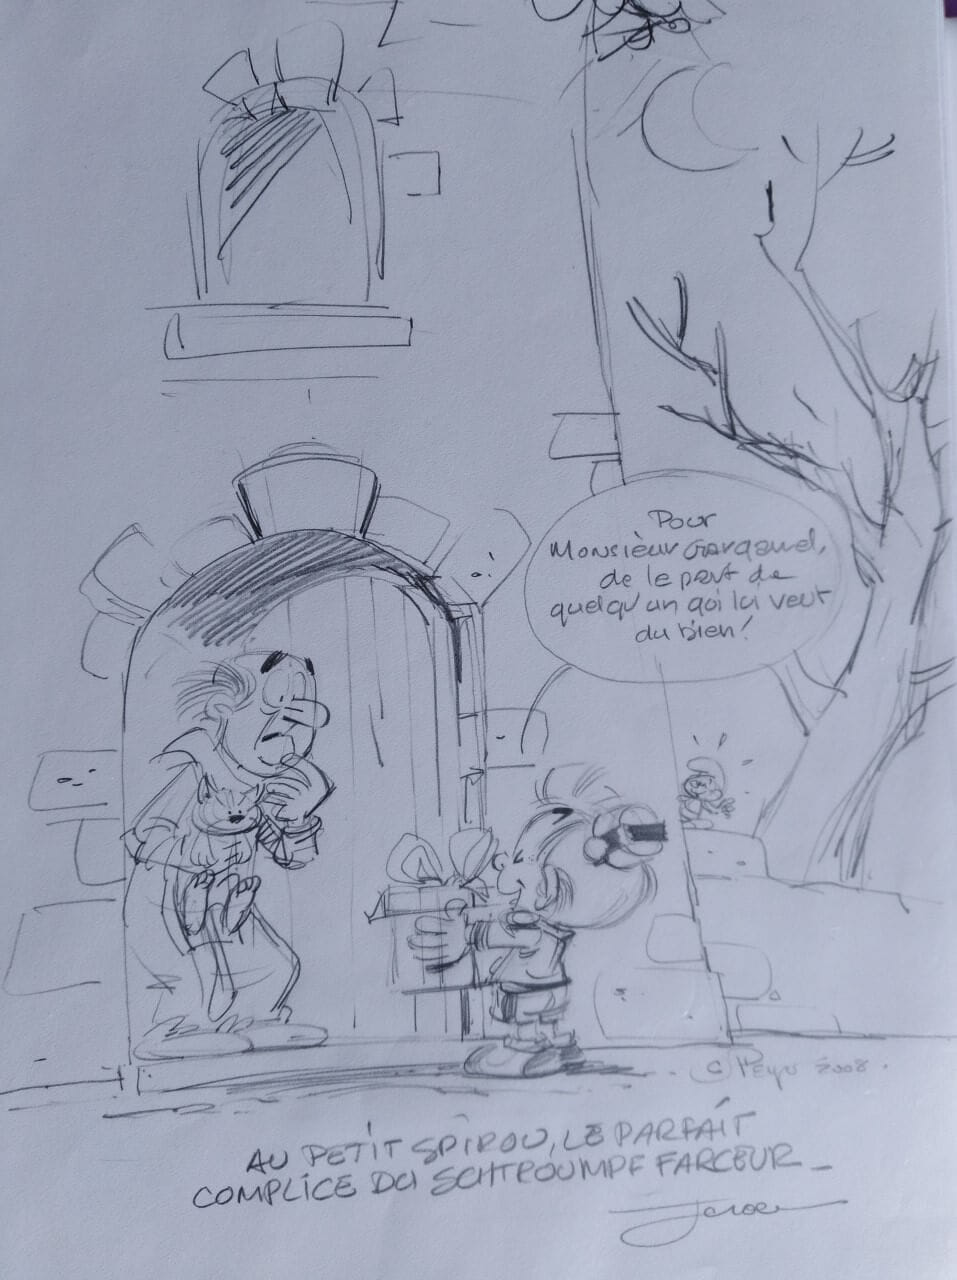 Pour
Monsieur Gargamel,
de la part de
quelqu'un qui lui veut
du bien!
© Peyo 2008.
AU PETIT SPIROU, LE PARFAIT
COMPLICE DU SCHTROUMPF FARCEUR_